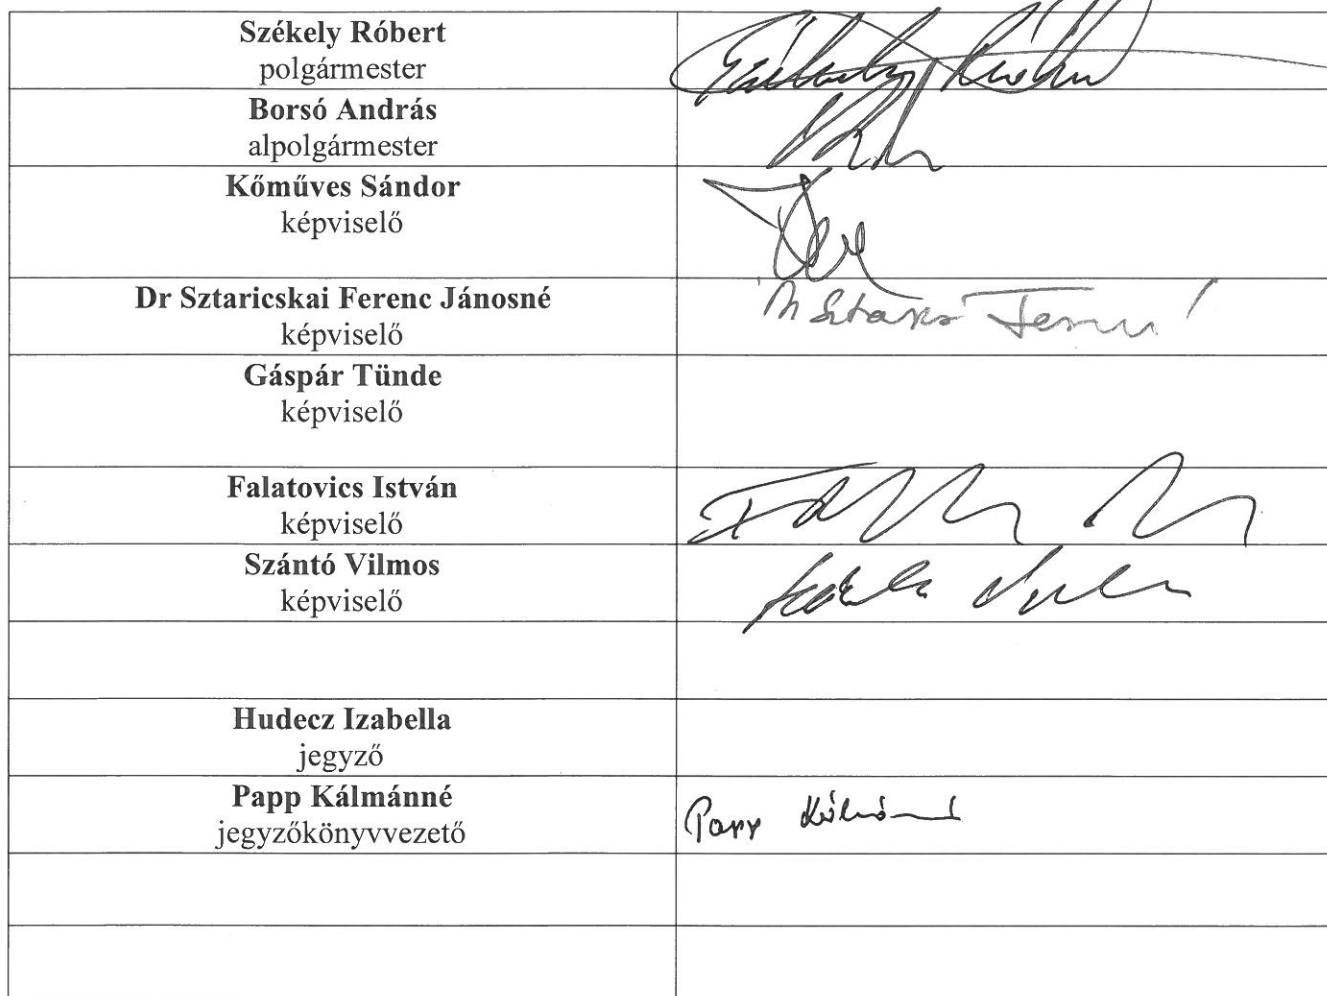 Székely Róbert
polgármester
Borsó András
alpolgármester
Kőműves Sándor
képviselő
Dr Sztaricskai Ferenc Jánosné
képviselő
Gáspár Tünde
képviselő
Falatovics István
képviselő
Szántó Vilmos
képviselő
Hudecz Izabella
jegyző
Papp Kálmánné
jegyzőkönyvvezető
Papp Kálmánné